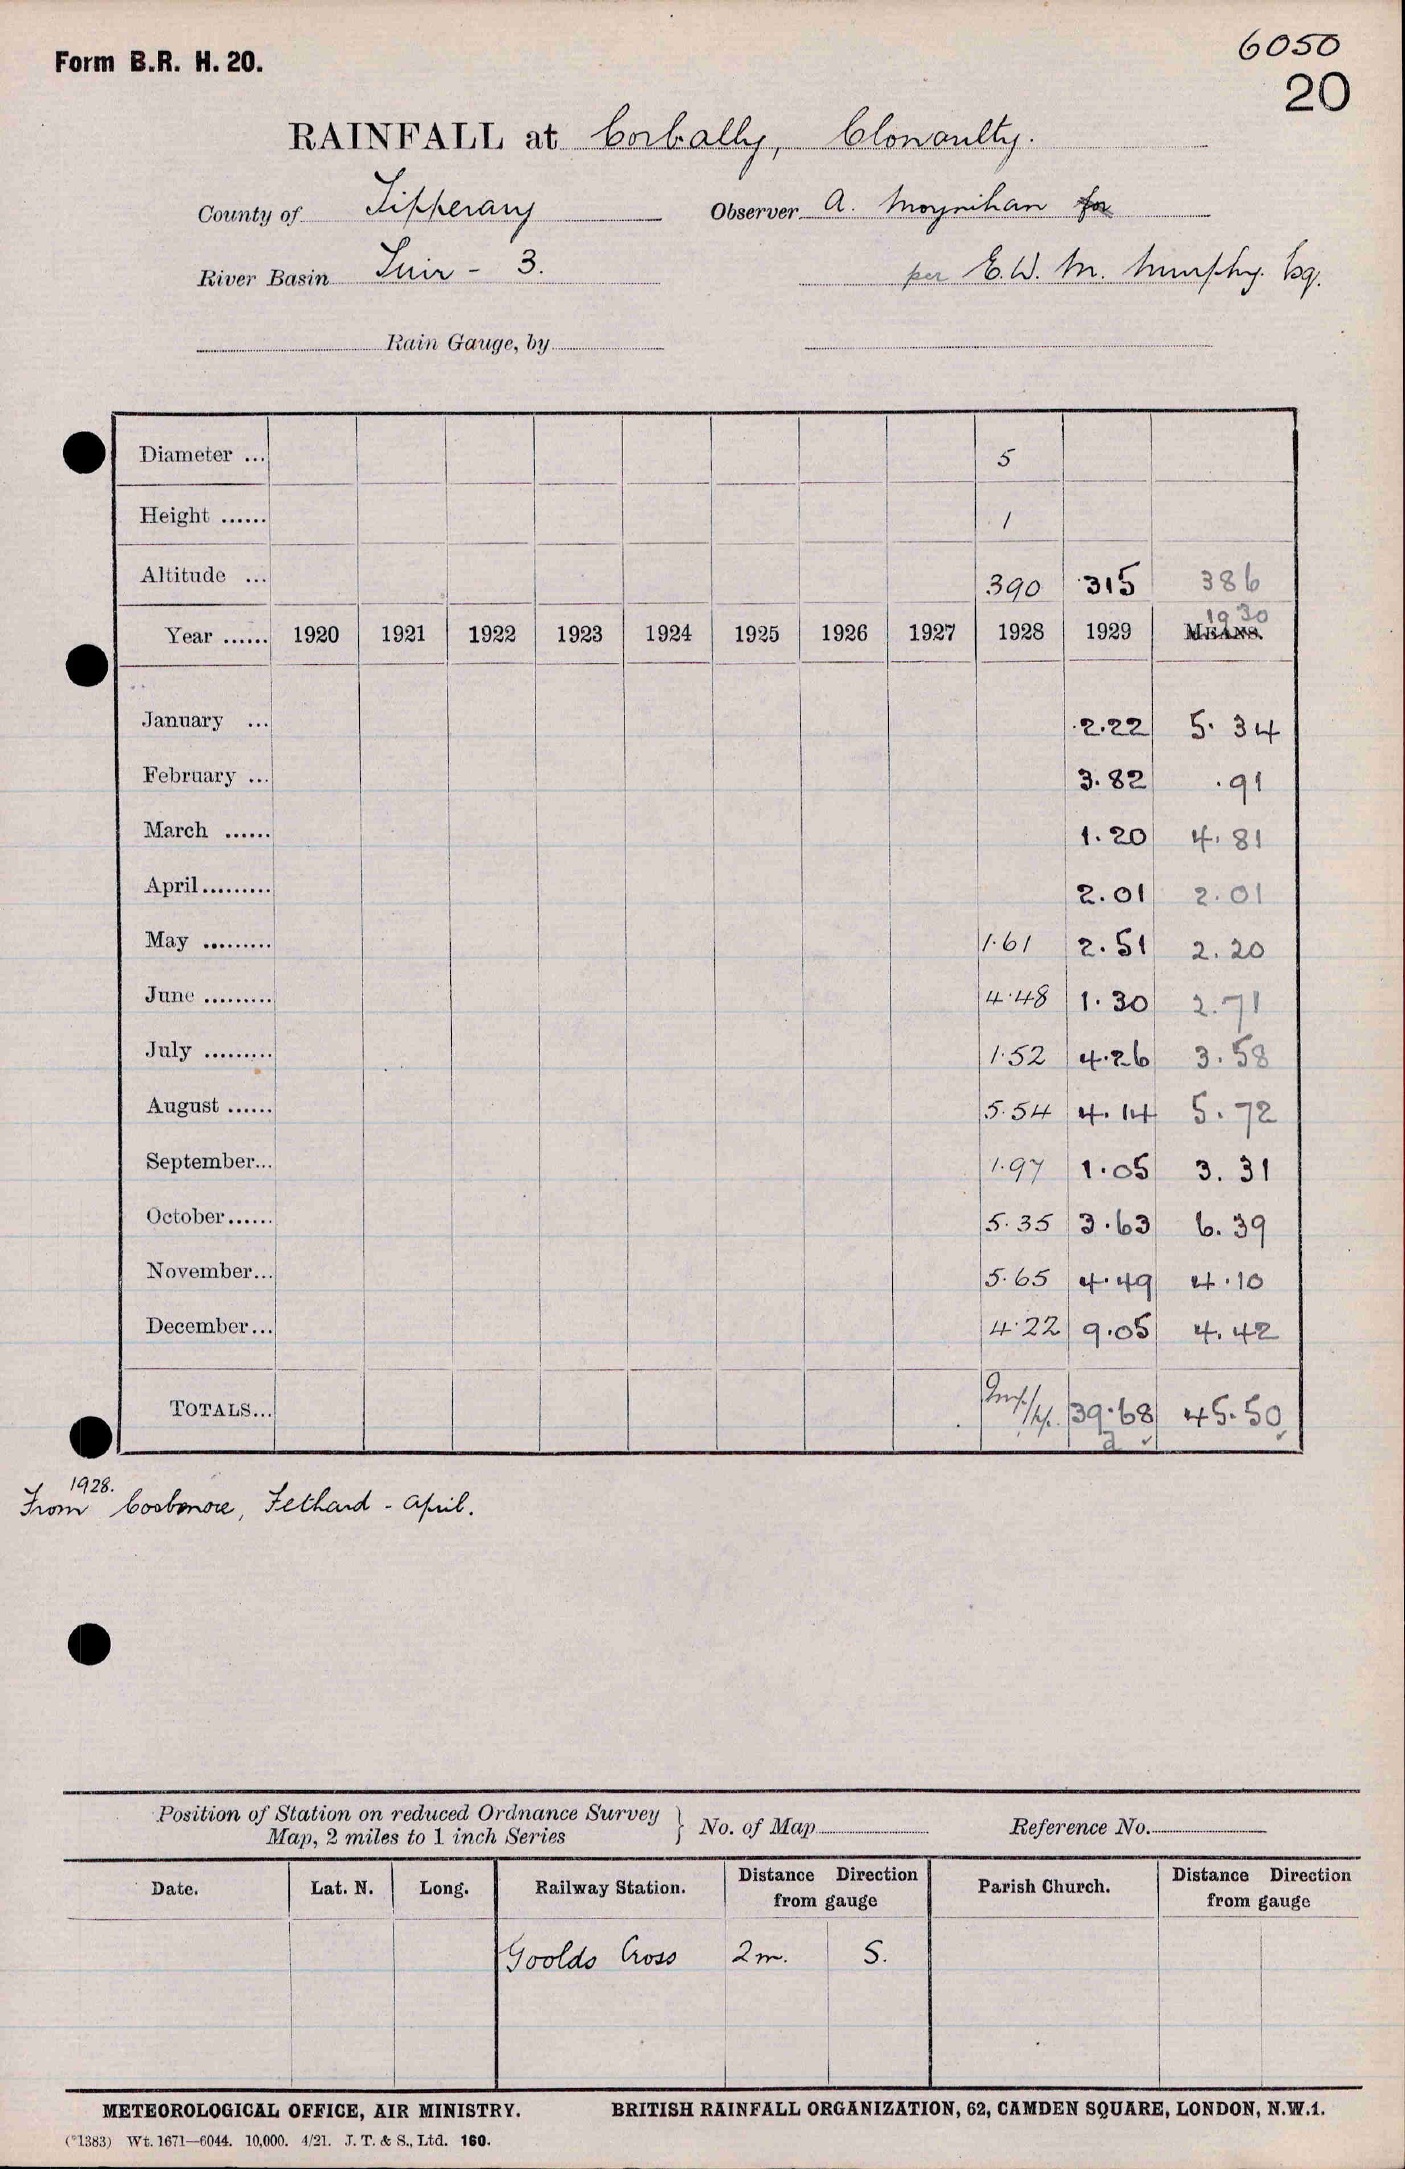 Form B.R. H. 20.
6050
20
RAINFALL at Corbally, Clonoulty.
County of Tipperary Observer A. Moynihan for
River Basin Suir - 3. per E.W. M. Murphy. Esq.
Rain Gauge, by
Diameter ... 5
Height ...... 1
Altitude ... 390 315 386
1930
Year ...... 1920 1921 1922 1923 1924 1925 1926 1927 1928 1929 MEANS.
January ... 2.22 5.34
February ... 3.82 .91
March ...... 1.20 4.81
April......... 2.01 2.01
May ......... 1.61 2.51 2.20
June ......... 4.48 1.30 2.71
July ......... 1.52 4.26 3.58
August ...... 5.54 4.14 5.72
September... 1.97 1.05 3.31
October...... 5.35 3.63 6.39
November... 5.65 4.49 4.10
December... 4.22 9.05 4.42
TOTALS... 39.68 45.50
a ✓ ✓
1928.
From Coolmore, Fethard - April.
Position of Station on reduced Ordnance Survey
Map, 2 miles to 1 inch Series } No. of Map Reference No.
Date. Lat. N. Long. Railway Station. Distance Direction from gauge Parish Church. Distance Direction from gauge
Goolds Cross 2m. S.
METEOROLOGICAL OFFICE, AIR MINISTRY. BRITISH RAINFALL ORGANIZATION, 62, CAMDEN SQUARE, LONDON, N.W.1.
(*1383) Wt. 1671—6044. 10,000. 4/21. J. T. & S., Ltd. 160.